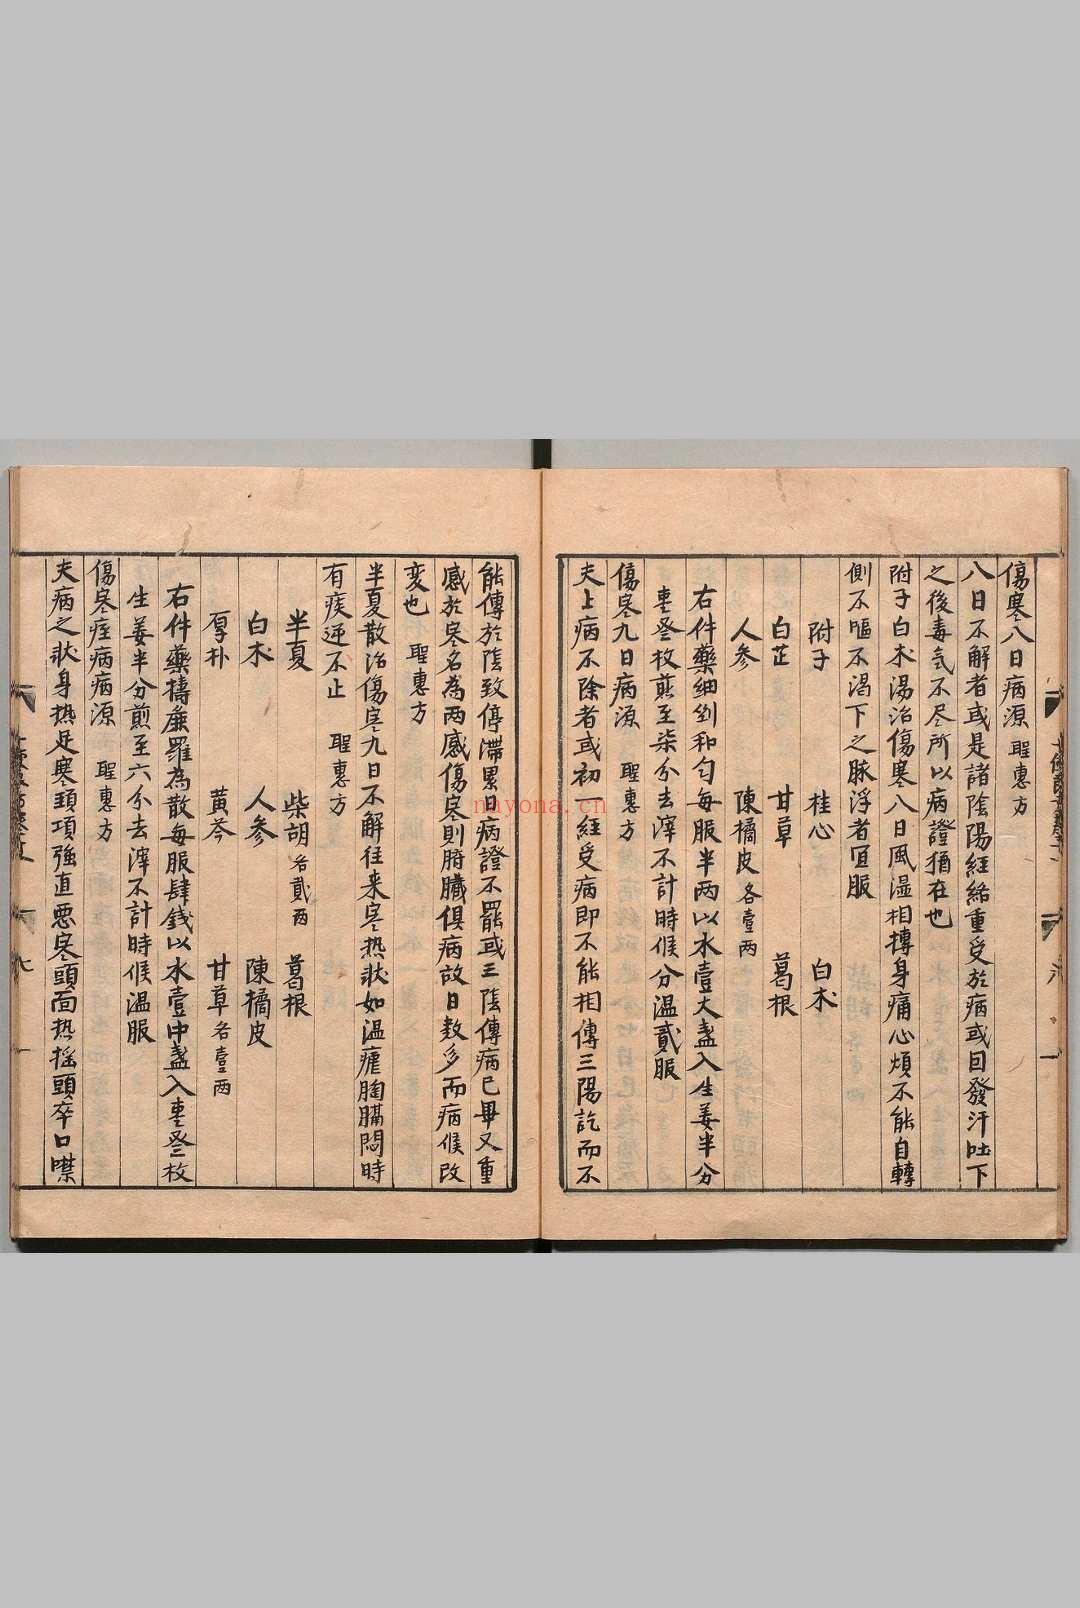 傷寒八日病源 聖惠方
八日不解者或是諸陰陽経絡重受於病或回發汗吐下
之後毒気不尽所以病證猶在也
附子白术湯治傷寒八日風湿相摶身痛心煩不能自轉
側不嘔不渇下之脉浮者宜服
附子 桂心 白术
白芷 甘草 葛根
人参 陳橘皮各壹両
右件藥細剉和匀每服半两以水壹大盞入生姜半分
枣叄枚煎至柒分去滓不計時候分温貳服
傷寒九日病源 聖惠方
夫上病不除者或初一経受病即不能相傳三陽訖而不
能傳於陰致停滯累日病證不罷或三陰傳病已畢又重
感於寒名為両感傷寒則腑臓俱病故日数多而病候改
変也 聖惠方
半夏散治傷寒九日不解往来寒热状如温瘧胸膈悶時
有痰逆不止 聖惠方
半夏 柴胡各貳両 葛根
白术 人参 陳橘皮
厚朴 黄芩 甘草各壹两
右件藥擣麄羅為散每服肆錢以水壹中盞入枣叄枚
生姜半分煎至六分去滓不計時候温服
傷寒痓病病源 聖惠方
夫病之状身热足寒頸項強直悪寒頭面热摇頭卒口噤
nayona.cn